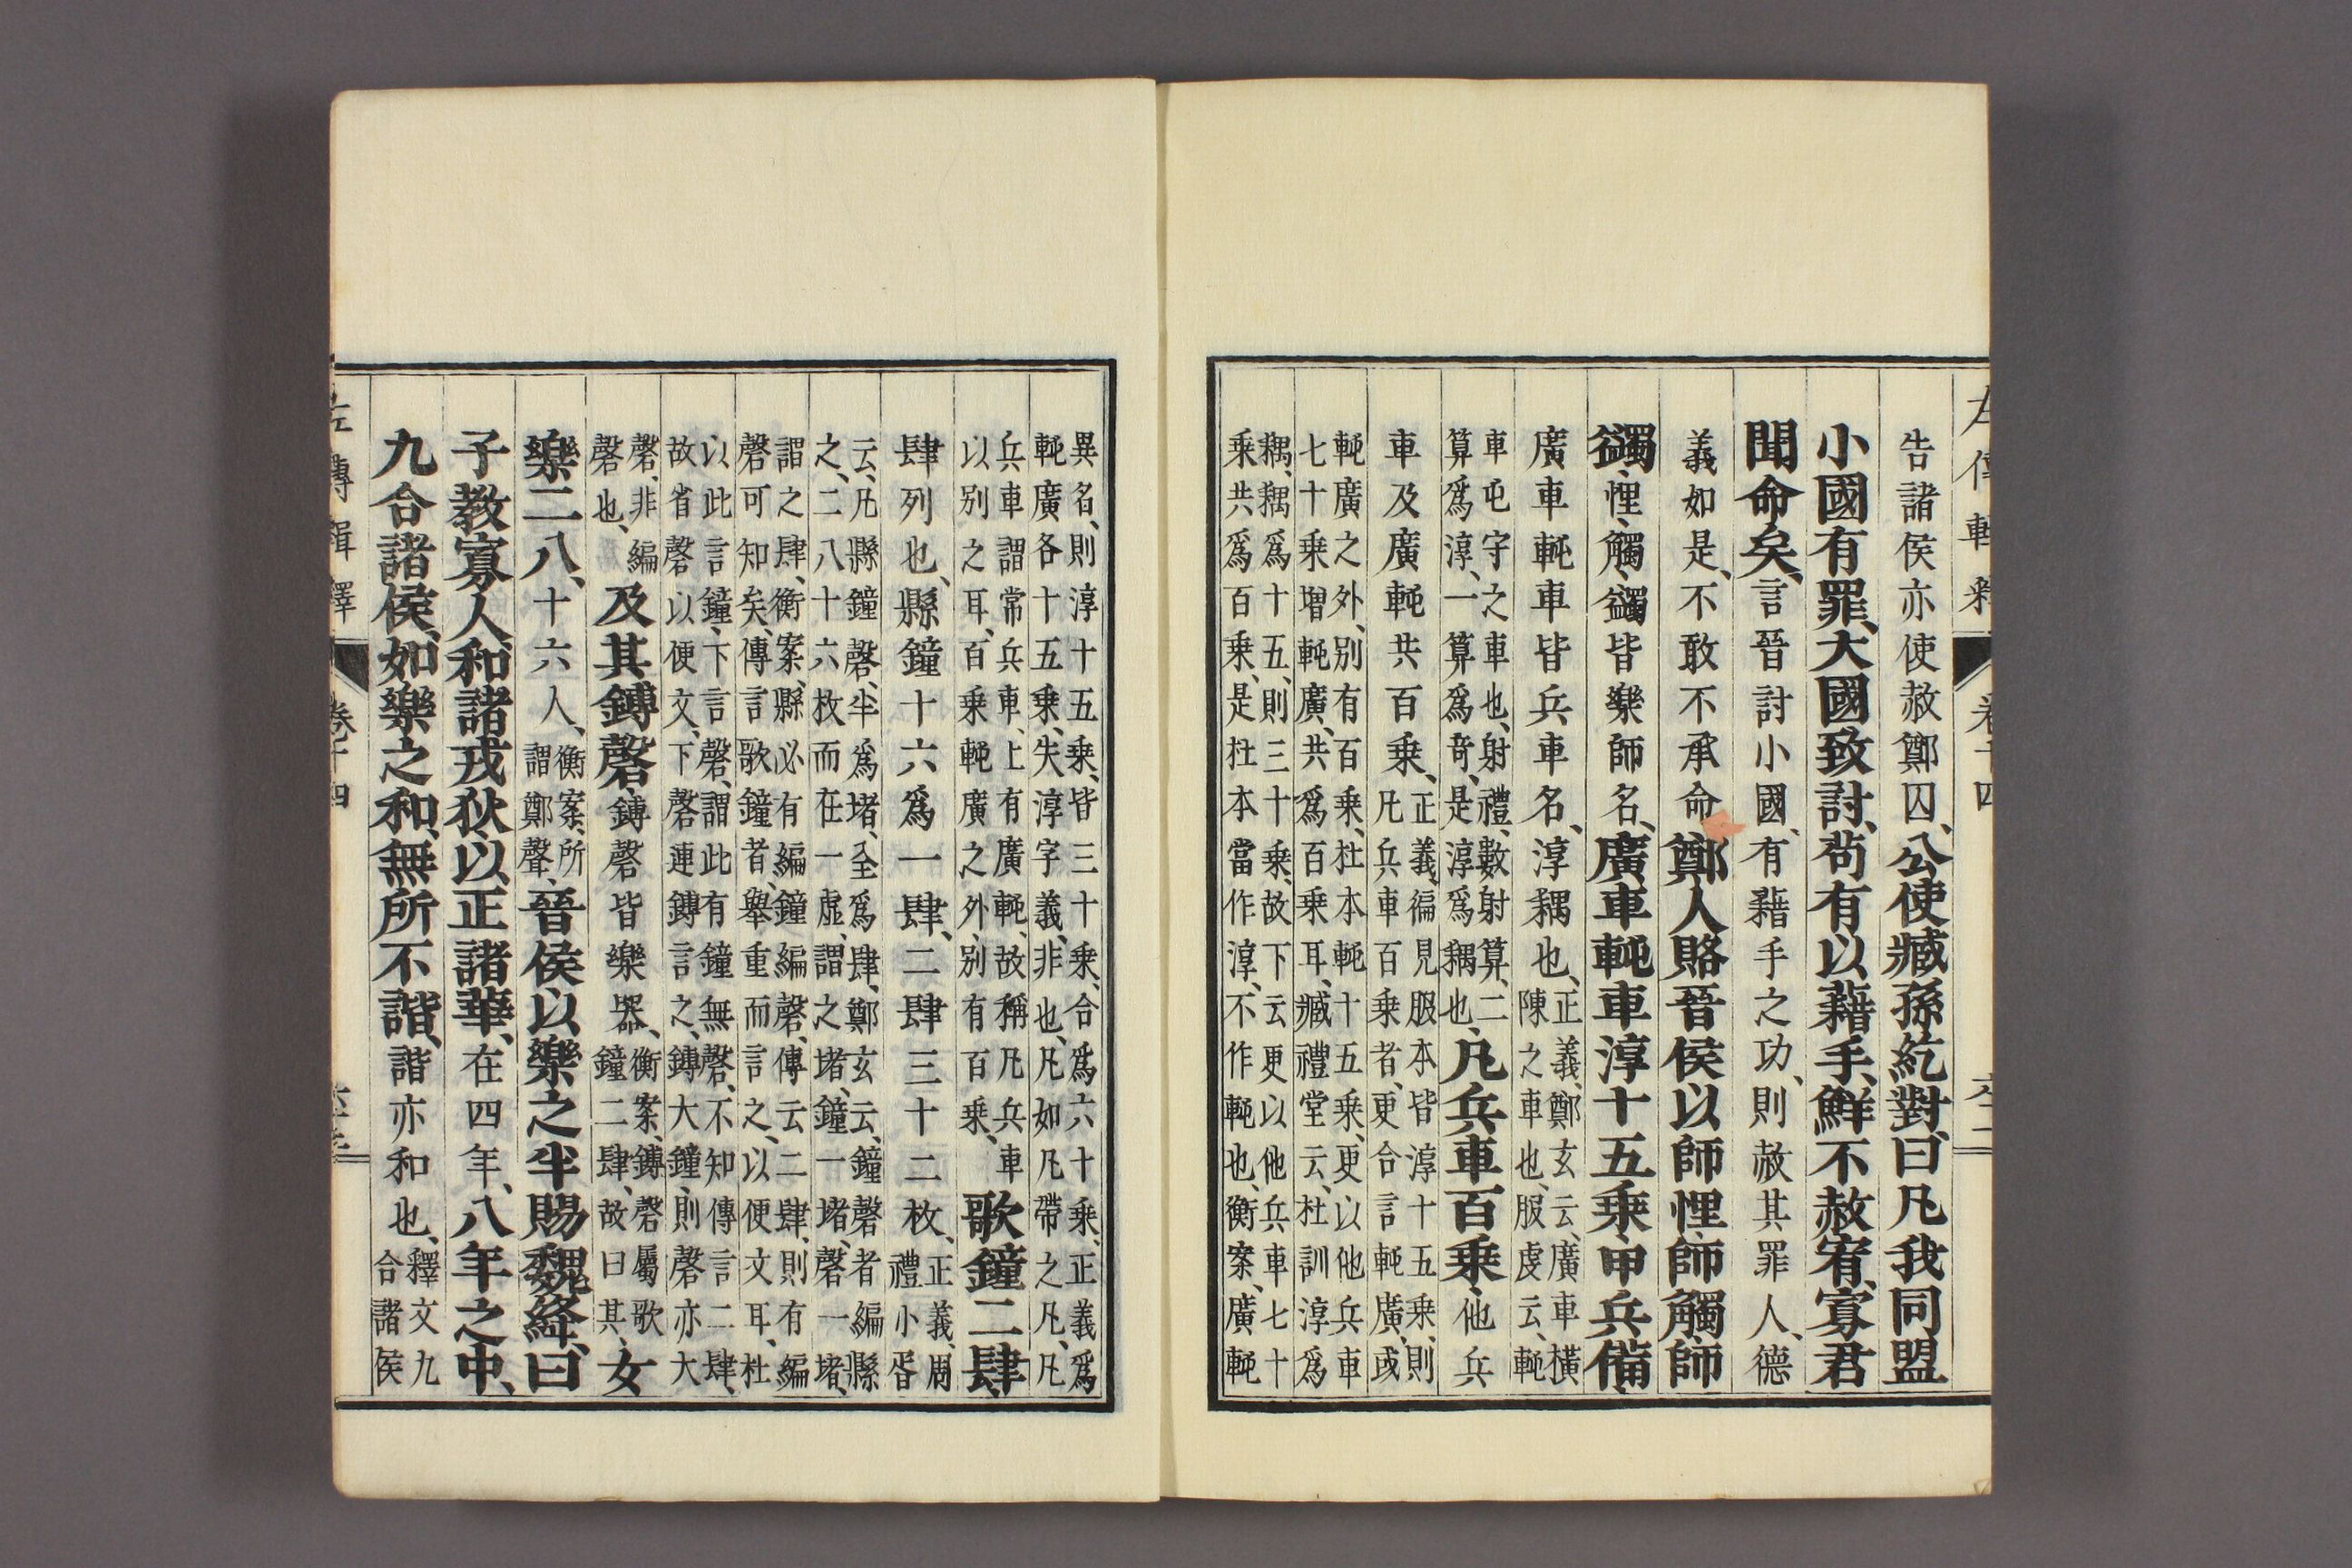 左傳輯釋 卷十四
告諸侯亦使赦鄭囚、公使臧孫紇對曰凡我同盟
小國有罪、大國致討、苟有以藉手、鮮不赦宥、寡君
聞命矣、言晉討小國、有藉手之功、則赦其罪人、德
義如是、不敢不承命鄭人賂晉侯以師悝、師觸、師
蠲、悝、觸、蠲皆樂師名、廣車軘車淳十五乘、甲兵備、
廣車軘車皆兵車名、淳耦也、正義、鄭玄云、廣車橫陳之車也、服虔云、軘
車屯守之車也、射禮、數射算、二算爲淳、一算爲奇、是淳爲耦也、凡兵車百乘、他兵
車及廣軘共百乘、正義、徧見服本皆淳十五乘、則凡兵車百乘者、更合言軘廣、或
軘廣之外、別有百乘、杜本軘十五乘、更以他兵車七十乘增軘廣、共爲百乘耳、臧禮堂云、杜訓淳爲
耦、耦爲十五、則三十乘、故下云更以他兵車七十乘共爲百乘、是杜本當作淳、不作軘也、衡案、廣軘
異名、則淳十五乘、皆三十乘、合爲六十乘、正義爲軘廣各十五乘、失淳字義、非也、凡如凡帶之凡、凡
兵車謂常兵車、上有廣軘、故稱凡兵車以別之耳、百乘軘廣之外、別有百乘、歌鐘二肆、
肆列也、縣鐘十六爲一肆、二肆三十二枚、正義、周禮小胥
云、凡縣鐘磬、半爲堵、全爲肆、鄭玄云、鐘磬者編縣之、二八十六枚而在一虡、謂之堵、鐘一堵、磬一堵、
謂之肆、衡案、縣必有編鐘編磬、傳云二肆、則有編磬可知矣、傳言歌鐘者、舉重而言之、以便文耳、杜
以此言鐘、下言磬、謂此有鐘無磬、不知傳言二肆、故省磬以便文、下磬連鎛言之、鎛大鐘、則磬亦大
磬、非編磬也、及其鎛磬、鎛磬皆樂器、衡案、鎛磬屬歌鐘二肆、故曰其、女
樂二八、十六人、衡案、所謂鄭聲、晉侯以樂之半賜魏絳、曰
子教寡人、和諸戎狄、以正諸華、在四年、八年之中、
九合諸侯、如樂之和、無所不諧、諧亦和也、釋文九合諸侯
左傳輯釋 卷十四